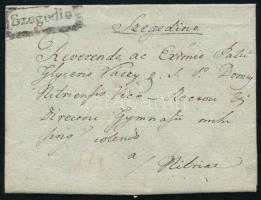 Szegedin
Szegedino
Reverendo ac Eximio Patri
Glycerio Vaczy e S. P. Domus
Nitriensis Vice-Rectori
Directori Gymnasii
colendo
a
Nitriae